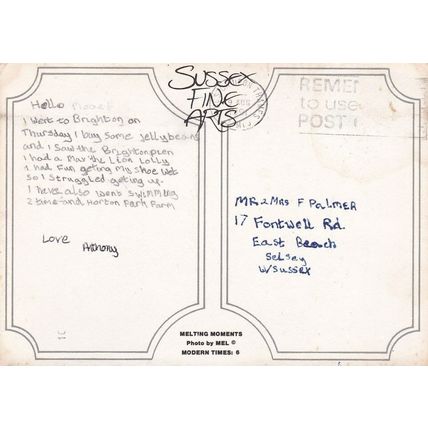 SUSSEX
FINE
ARTS
REME
to use
POST
Hello
I went to Brighton on
Thursday I buy some Jellybeans
and I saw the Brightonpien
I had a Max the Lion Lolly
I had Fun geting my shoe wet
so I struggled geting up.
I never also went swimming
2 time and Horton Park Farm
Love
Anthony
MR & MRS F PALMER
17 Fontwell Rd.
East Beach
Selsey
W/SUSSEX
MELTING MOMENTS
Photo by MEL ©
MODERN TIMES: 6